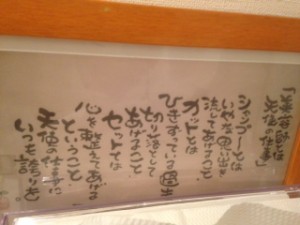 「美容師は
天使の仕事」
シャンプーとは
いやな思い出を
流してあげること
カットとは
ひきずっている過去
切り落として
あげること
セットとは
心を整えてあげる
ということ
天使の仕事に
いつも誇りを